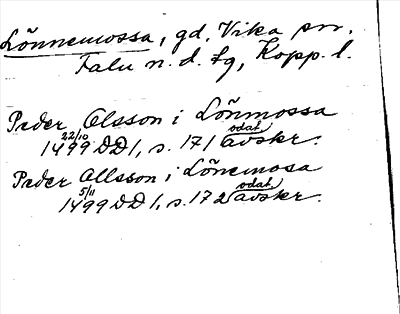 Lönnemossa, gd, Vika sn.
Falu n. d. tg, Kopp. l.
Peder Olsson i Lõnmossa
22/10
1499 DD 1, s. 171 odat. avskr.
Peder Ollsson i Lõnemosa
5/11
1499 DD 1, s. 172 odat. avskr.